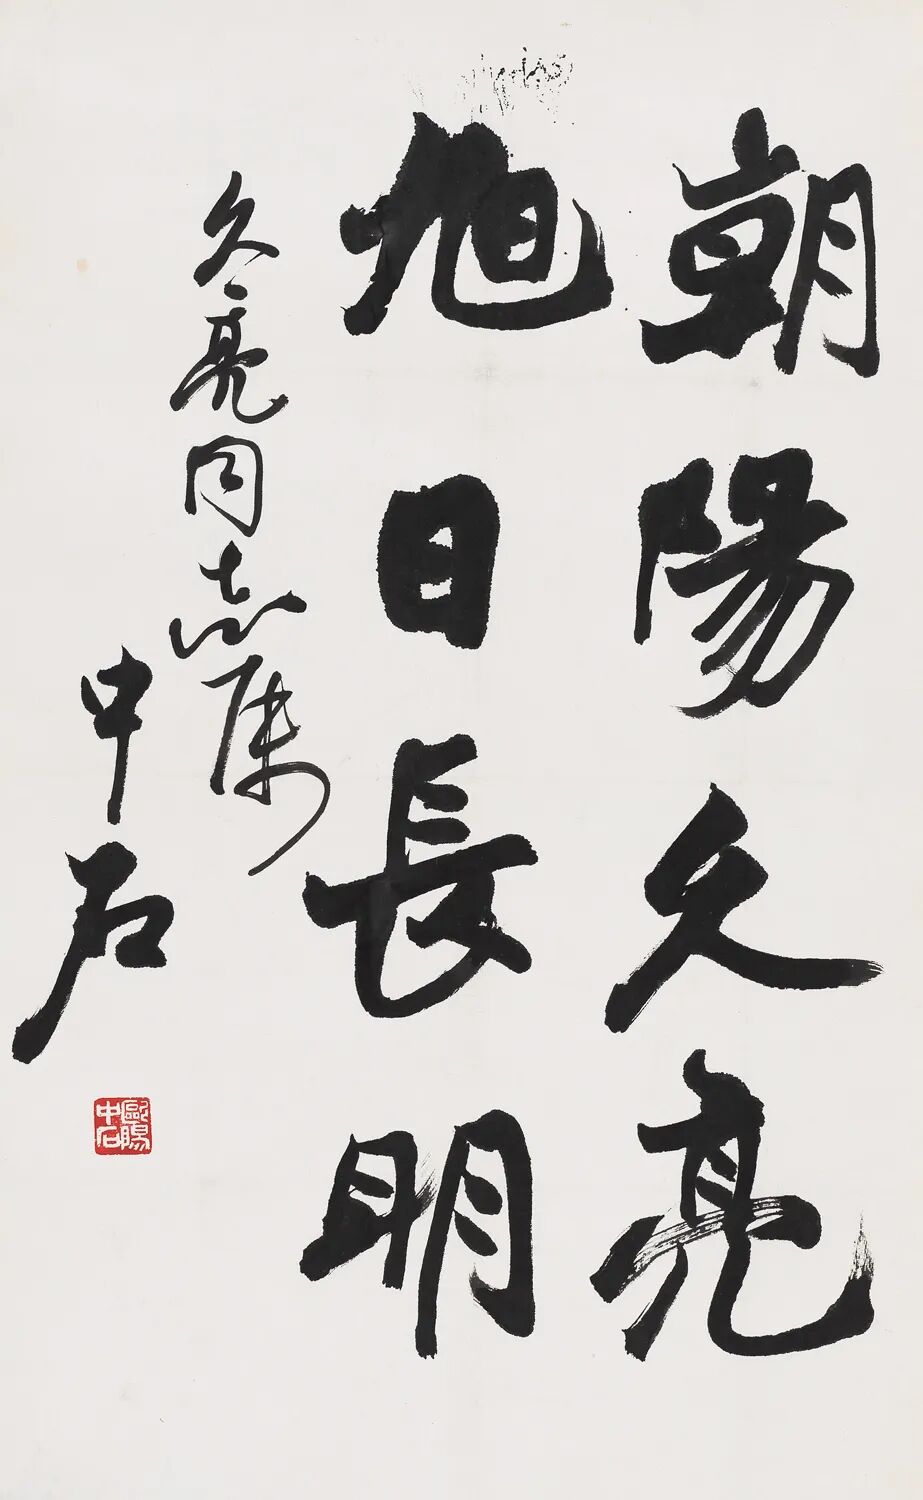 朝陽久亮
旭日長明
久亮同志屬
中石
歐陽中石